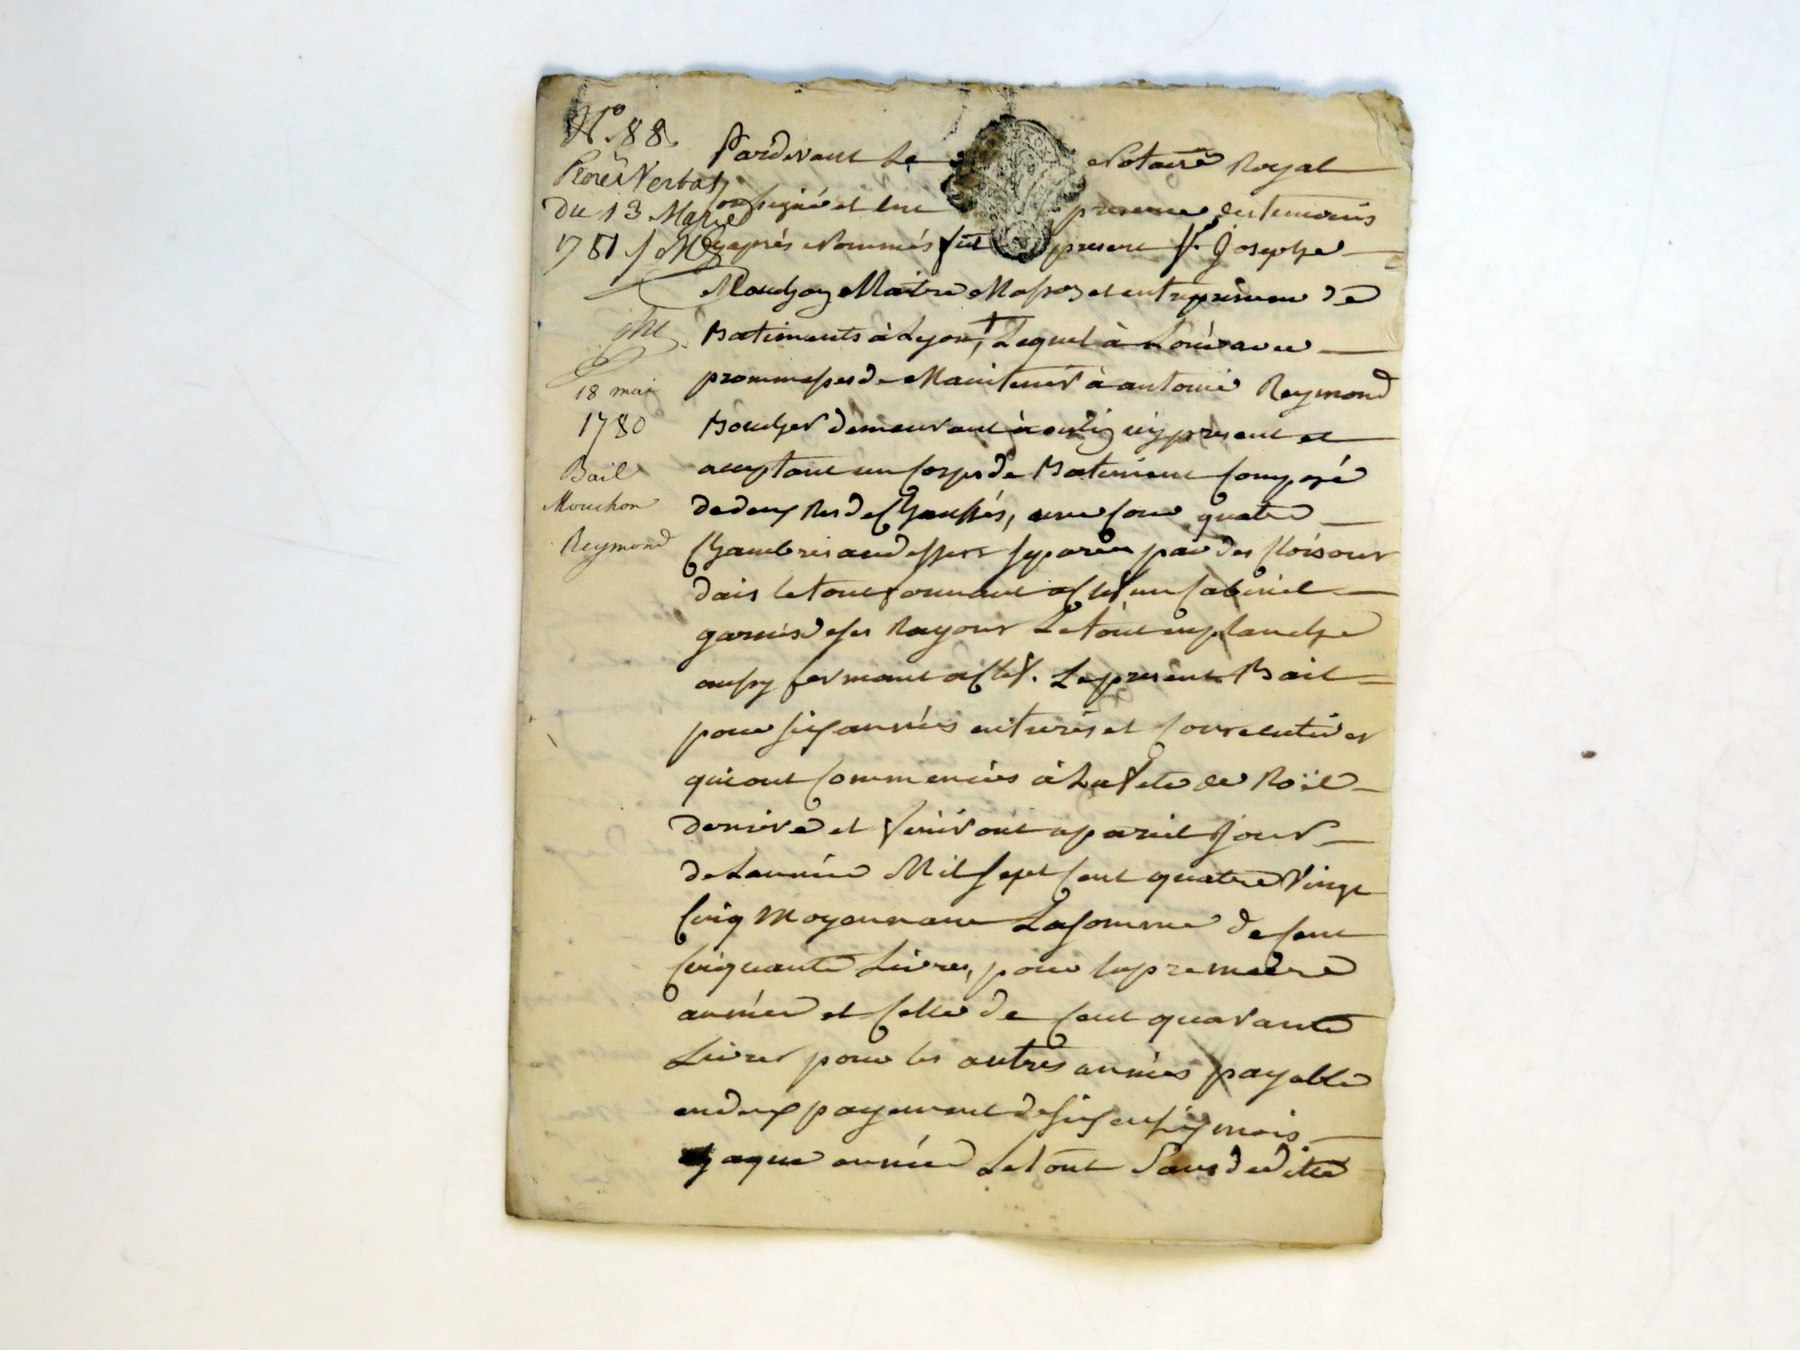 N.º 88.
Procès Verbal
du 13 Mars
1781
18 mai
1780
Bail
Mouchon
Reymond
Pardevant Le Notaire Royal
soussigné et en presence des temoins
cy après Nommés fut present Sr. Josephe
Mouchon Maitre Masson et entrepreneur de
Batiments à Lyon, Lequel à Loué avec
prommesses de Maintenir à antoine Reymond
Boucher demeurant à present et
acceptant un Corps de Batiment Composé
de deux Res de Chaussés, une Cour quatre
Chambres au dessus separées par des Cloisons
dais le tout fermant a Clef un Cabinet
garnis des Rayons Le tout en planche
aussy fermant a Clef. Le present Bail
pour six années entieres et Consecutives
qui ont Commencées à La fete de Noël
derniere et finiront a pareil Jour
de Lannée Mil sept Cent quatre Vingt
Cinq Moyennant La somme de Cent
Cinquante Livres, pour la premiere
année et Celle de Cent quarante
Livres pour les autres années payable
en deux payement de six en six mois
Chaque année Le tout Sans deditte